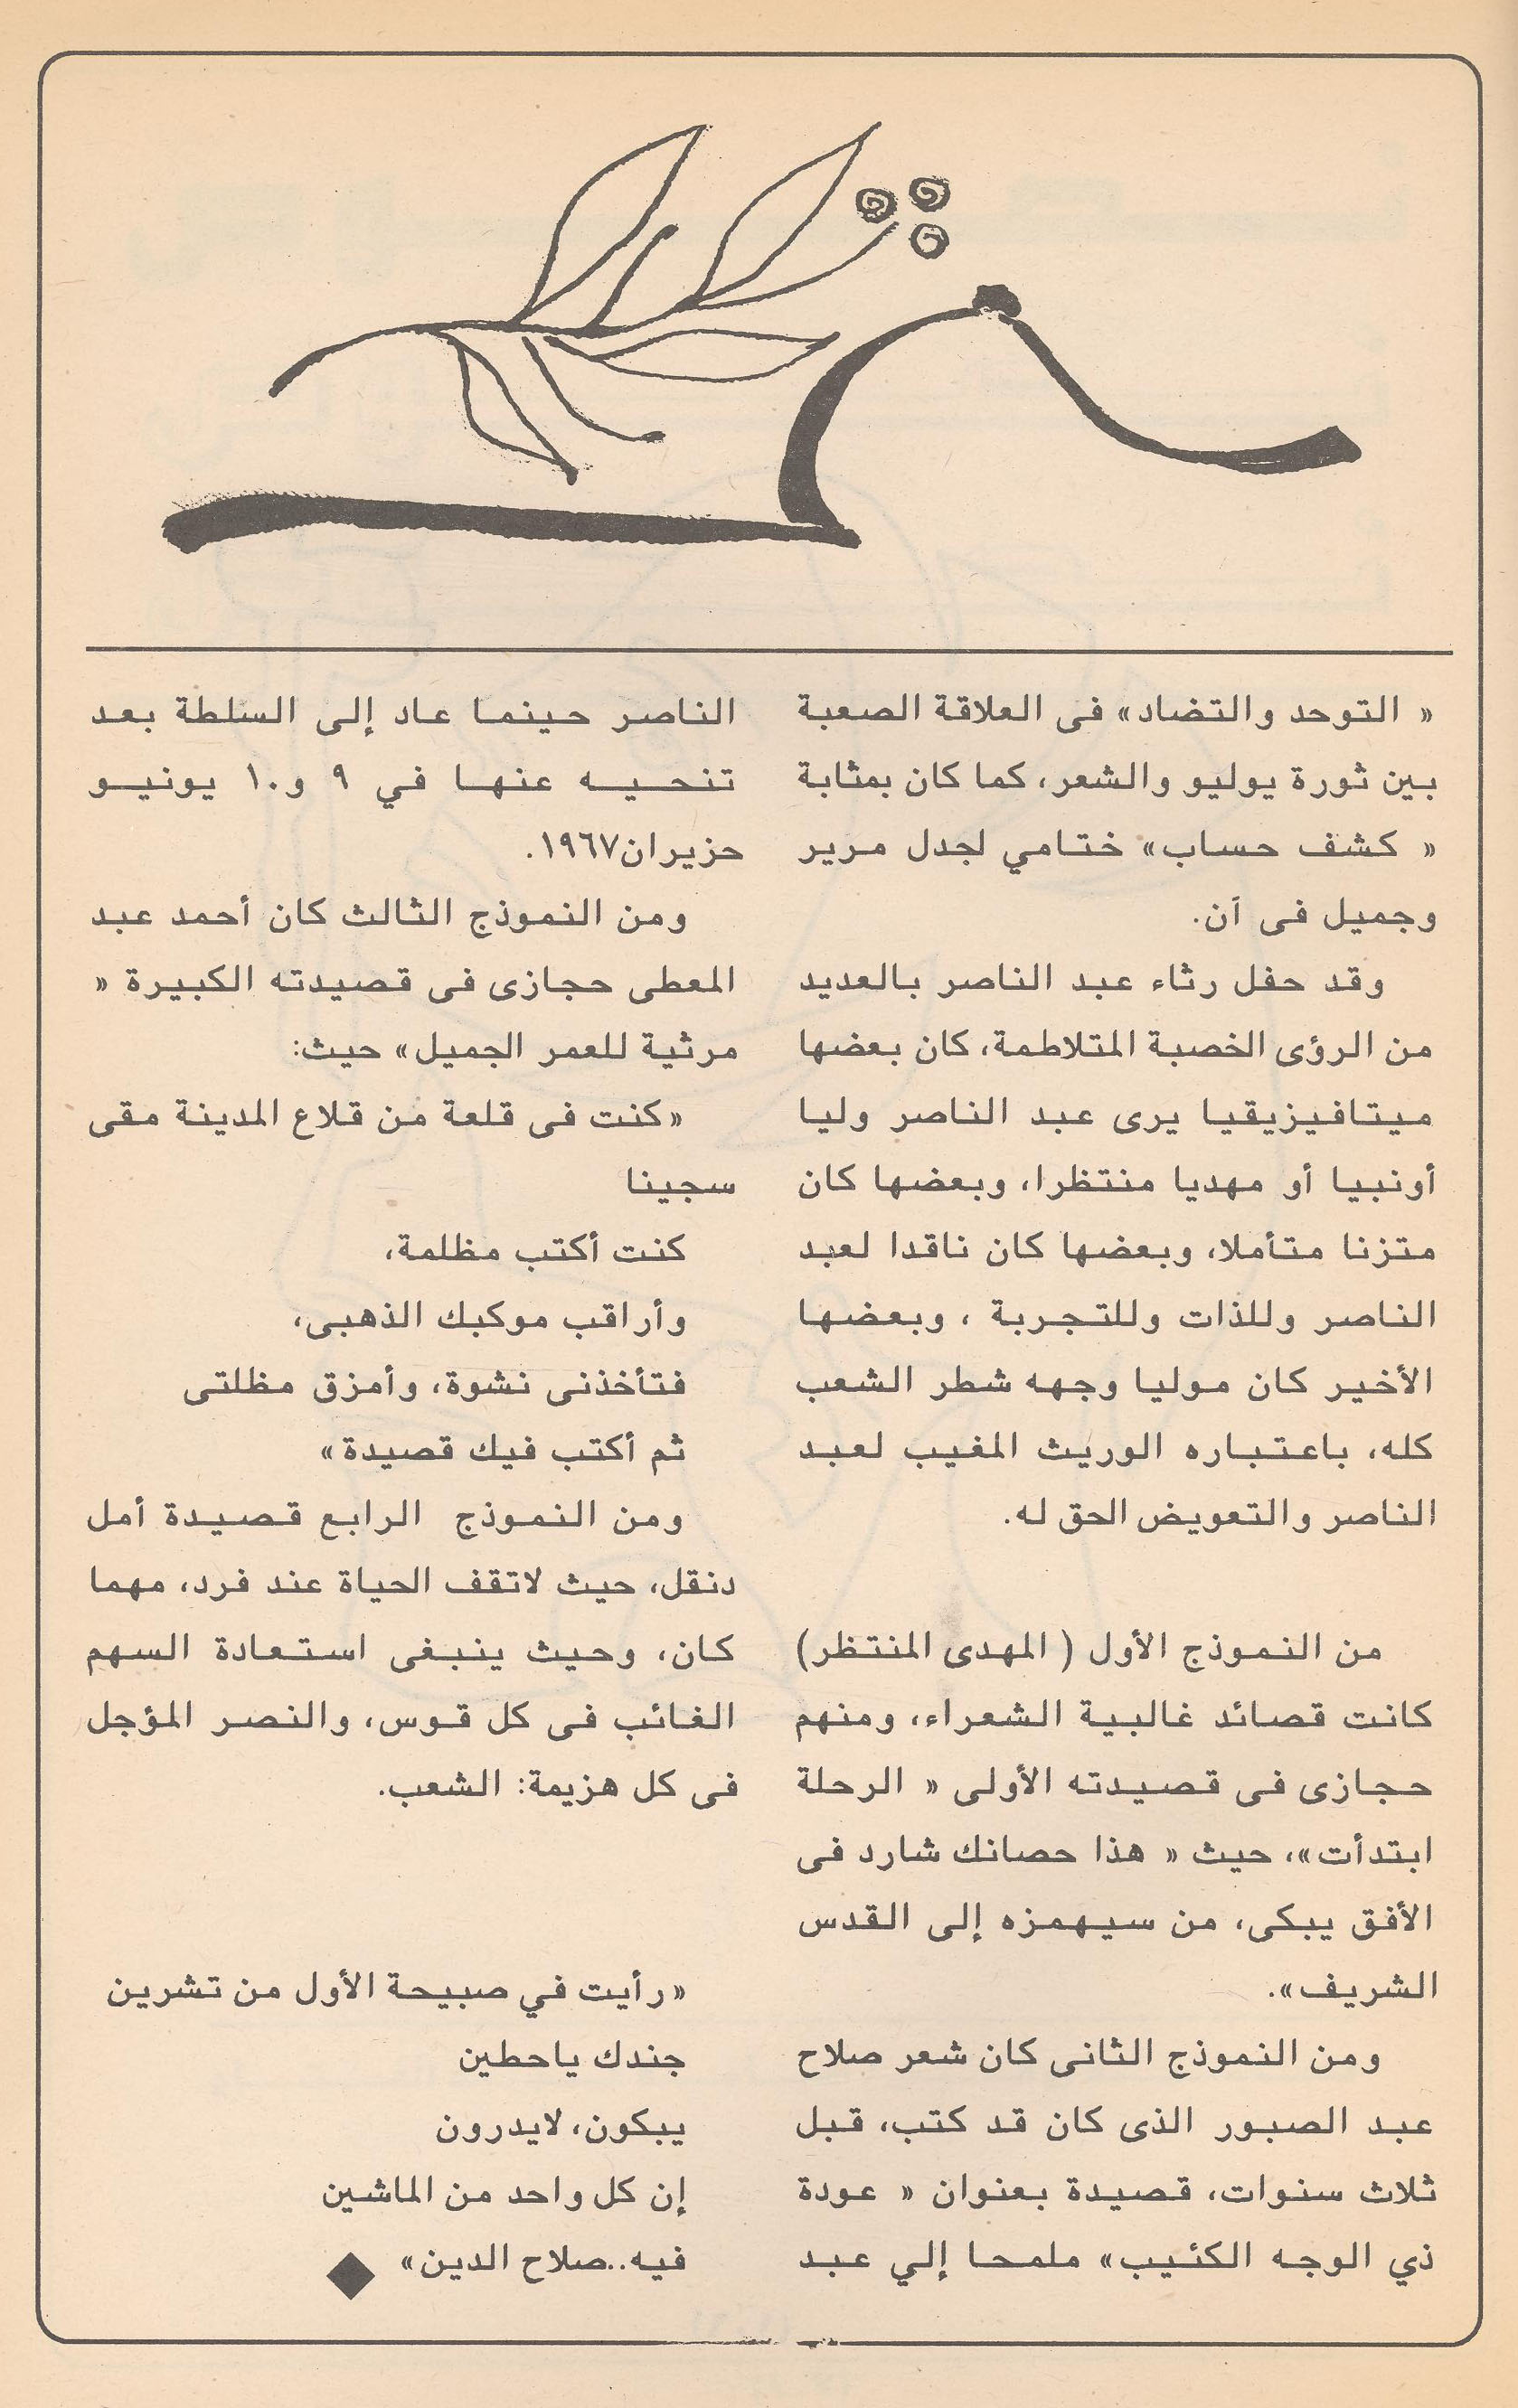 « التوحد والتضاد» فى العلاقة الصعبة
بين ثورة يوليو والشعر، كما كان بمثابة
« كشف حساب» ختامي لجدل مرير
وجميل فى آن.
وقد حفل رثاء عبد الناصر بالعديد
من الرؤى الخصبة المتلاطمة، كان بعضها
ميتافيزيقيا يرى عبد الناصر وليا
أونبيا أو مهديا منتظرا، وبعضها كان
متزنا متأملا، وبعضها كان ناقدا لعبد
الناصر وللذات وللتجربة ، وبعضها
الأخير كان موليا وجهه شطر الشعب
كله، باعتباره الوريث المغيب لعبد
الناصر والتعويض الحق له.
من النموذج الأول ( المهدى المنتظر)
كانت قصائد غالبية الشعراء، ومنهم
حجازى فى قصيدته الأولى « الرحلة
ابتدأت»، حيث « هذا حصانك شارد فى
الأفق يبكى، من سيهمزه إلى القدس
الشريف».
ومن النموذج الثانى كان شعر صلاح
عبد الصبور الذى كان قد كتب، قبل
ثلاث سنوات، قصيدة بعنوان « عودة
ذي الوجه الكئيب» ملمحا إلي عبد
الناصر حينما عاد إلى السلطة بعد
تنحيه عنها في ٩ و١٠ يونيو
حزيران١٩٦٧.
ومن النموذج الثالث كان أحمد عبد
المعطى حجازى فى قصيدته الكبيرة «
مرثية للعمر الجميل» حيث:
«كنت فى قلعة من قلاع المدينة مقى
سجينا
كنت أكتب مظلمة،
وأراقب موكبك الذهبى،
فتأخذنى نشوة، وأمزق مظلتى
ثم أكتب فيك قصيدة»
ومن النموذج الرابع قصيدة أمل
دنقل، حيث لاتقف الحياة عند فرد، مهما
كان، وحيث ينبغى استعادة السهم
الغائب فى كل قوس، والنصر المؤجل
فى كل هزيمة: الشعب.
«رأيت في صبيحة الأول من تشرين
جندك ياحطين
يبكون، لايدرون
إن كل واحد من الماشين
فيه..صلاح الدين»